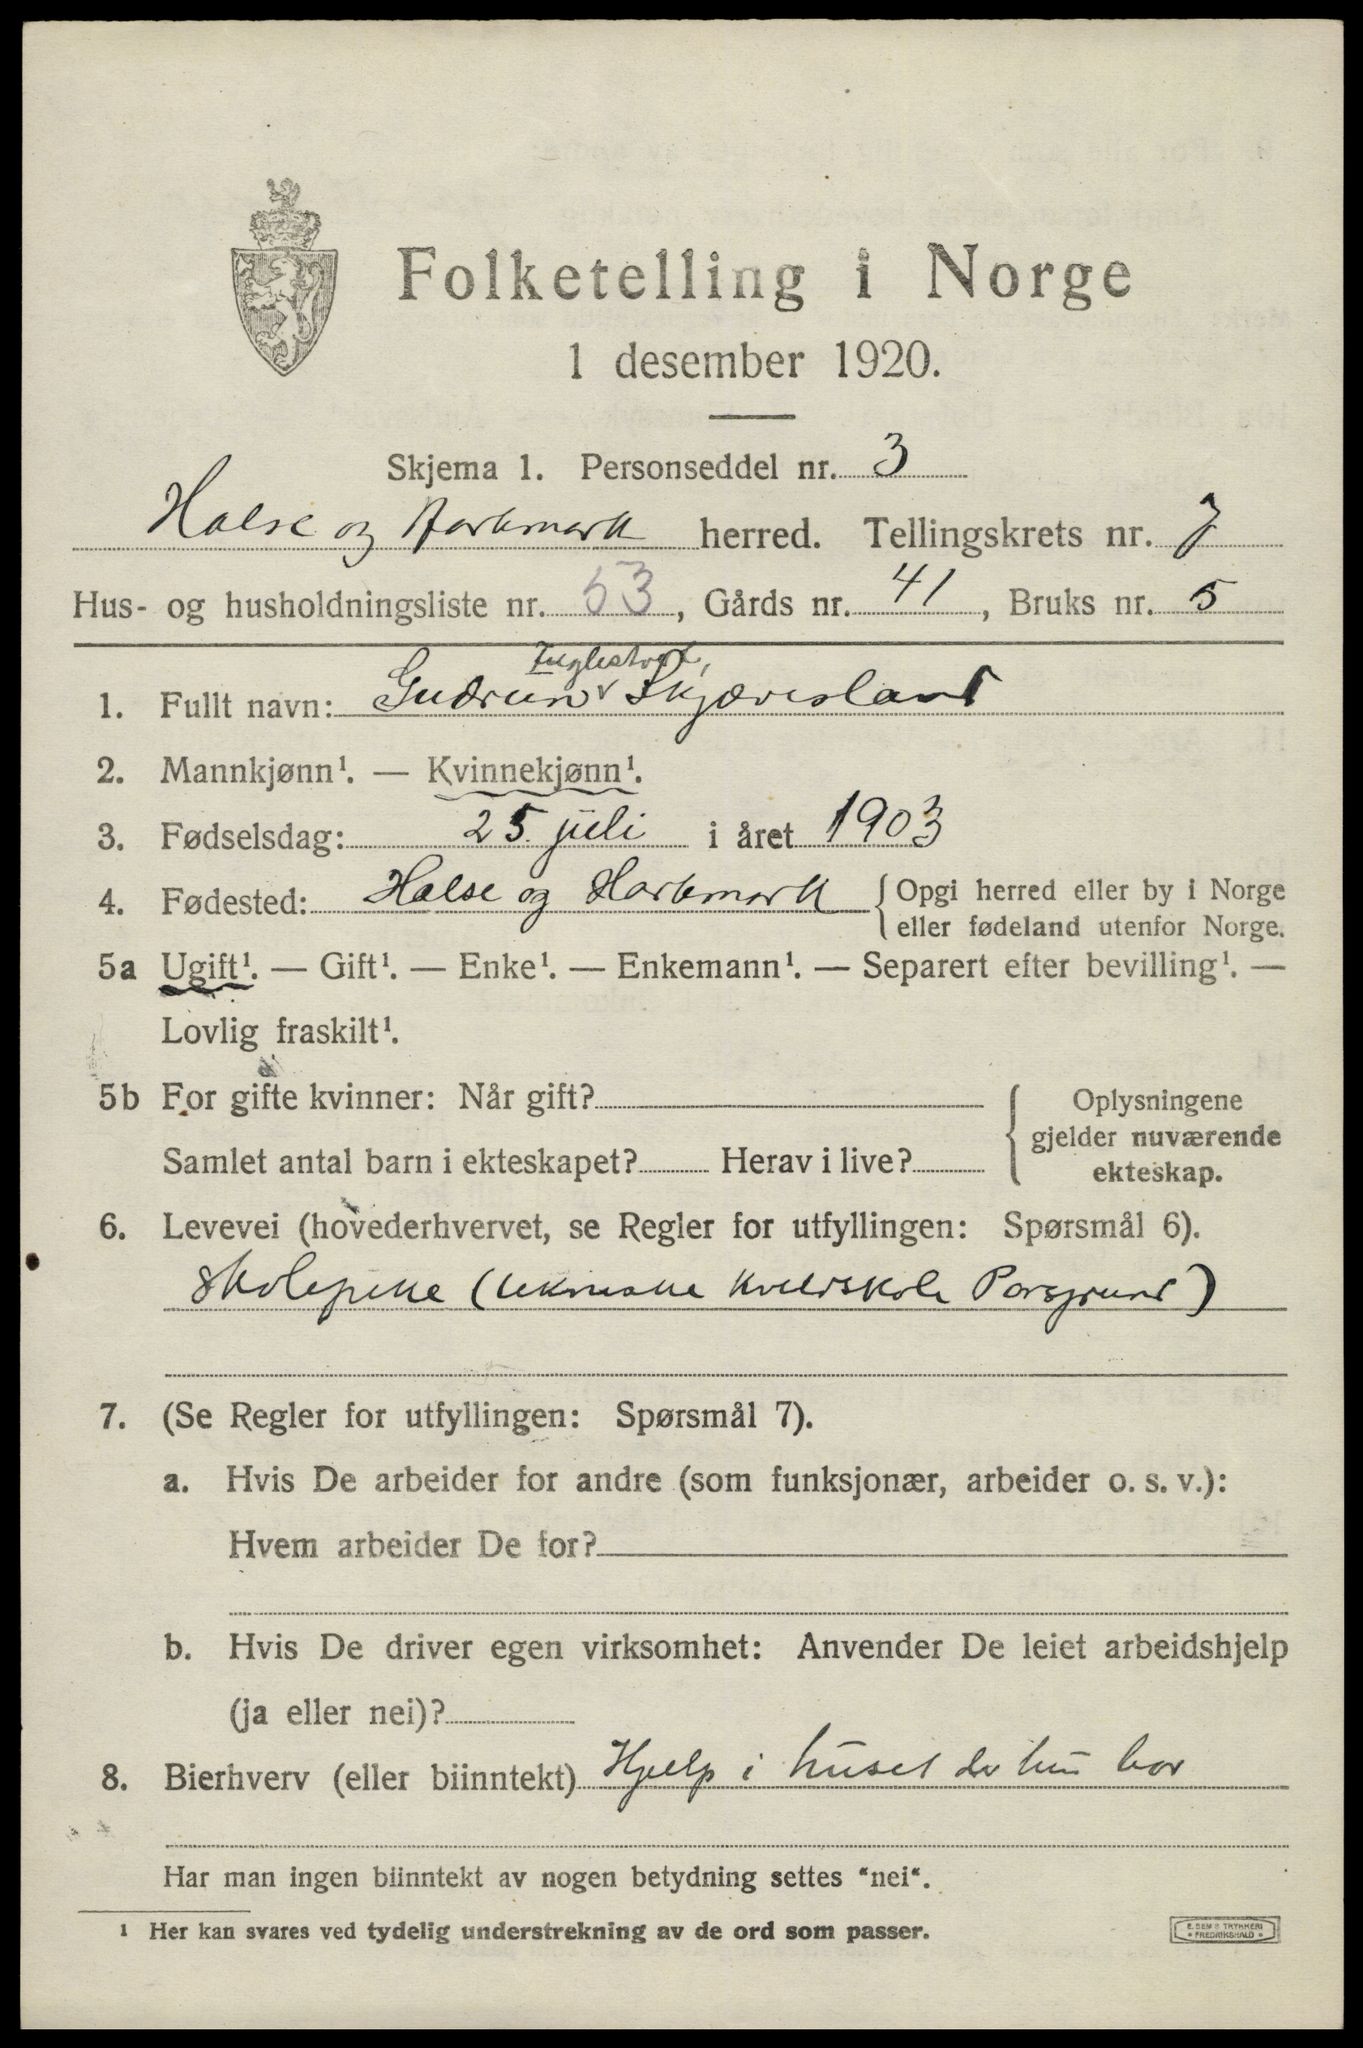 Folketelling i Norge
1 desember 1920.
Skjema 1. Personseddel nr. 3
Halse og Harkmark herred. Tellingskrets nr. 7
Hus- og husholdningsliste nr. 53, Gårds nr. 41, Bruks nr. 5
Fuglestvedt,
1. Fullt navn: Gudrun v Skjævesland
2. Mannkjønn¹. — Kvinnekjønn¹.
3. Fødselsdag: 25. juli i året 1903
4. Fødested: Halse og Harkmark { Opgi herred eller by i Norge
eller fødeland utenfor Norge.
5a Ugift¹. — Gift¹. — Enke¹. — Enkemann¹. — Separert efter bevilling¹. —
Lovlig fraskilt¹.
5b For gifte kvinner: Når gift? { Oplysningene
gjelder nuværende
Samlet antal barn i ekteskapet? Herav i live?
ekteskap.
6. Levevei (hovederhvervet, se Regler for utfyllingen: Spørsmål 6).
Skolepike (tekniske kveldskole Porsgrund)
7. (Se Regler for utfyllingen: Spørsmål 7).
a. Hvis De arbeider for andre (som funksjonær, arbeider o. s. v.):
Hvem arbeider De for?
b. Hvis De driver egen virksomhet: Anvender De leiet arbeidshjelp
(ja eller nei)?
8. Bierhverv (eller biinntekt) Hjelp i huset der hun bor
Har man ingen biinntekt av nogen betydning settes "nei".
¹ Her kan svares ved tydelig understrekning av de ord som passer.
E. SEM'S TRYKKERI
* FREDRIKSHALD *